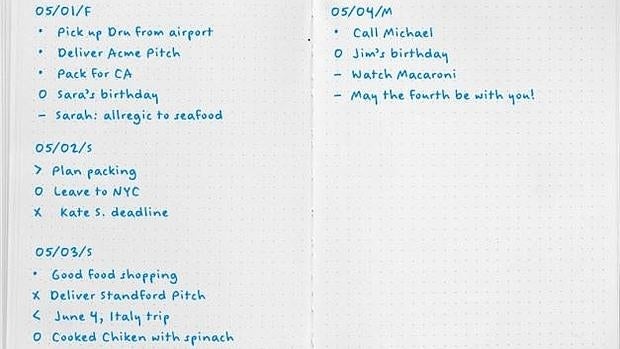 05/01/F
• Pick up Dru from airport
• Deliver Acme Pitch
• Pack for CA
O Sara's birthday
– Sarah: allregic to seafood
05/02/S
> Plan packing
O Leave to NYC
x Kate S. deadline
05/03/S
• Good food shopping
x Deliver Standford Pitch
< June 4, Italy trip
O Cooked Chiken with spinach
05/04/M
• Call Michael
O Jim's birthday
– Watch Macaroni
– May the fourth be with you!